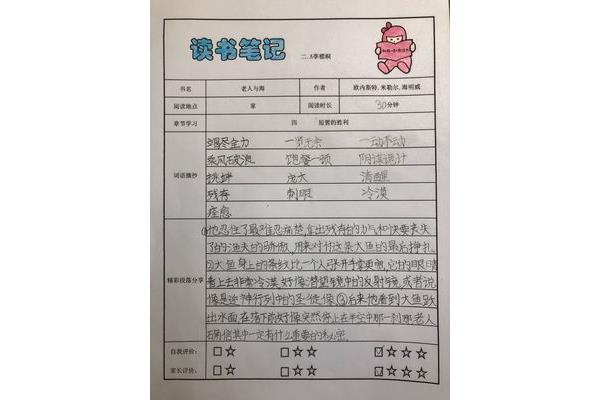 读书笔记 二.8李梧桐
书名 老人与海 作者 欧内斯特.米勒尔.海明威
阅读地点 家 阅读时长 30分钟
章节学习 四 短暂的胜利
词语摘抄
竭尽全力 一览无余 一动不动
乘风破浪 饱餐一顿 阴谋诡计
挑衅 庞大 清醒
残存 刺眼 冷漠
痊愈
精彩段落分享
①他忍住了最难忍痛楚,拿出残存的力气和快要丧失
了的渔夫的骄傲,用来对付这条大鱼的最后挣扎
②大鱼身上的条纹比一个人张开手掌更宽,它的眼睛
看上去非常冷漠,好像潜望镜中的反射镜,或者说
像是迎神行列中的圣徒像③后来他看到大鱼跃
出水面,在落下前好像突然停止在半空中那一刹那,老人
确信其中一定有什么重要的秘密.
自我评价: □☆ □☆☆ ☑☆☆☆
家长评价: □☆ □☆☆ ☑☆☆☆